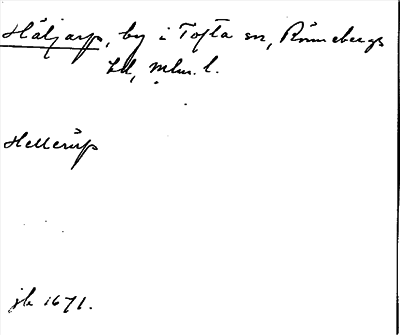 Häljarp, by i Tofta sn, Rönnebergs
hd, Mlm. l.
Hellerüp
jb 1671.